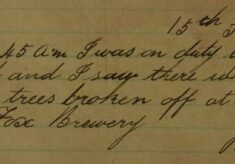 15th
45 am I was on duty
and I say there
trees broken off at
Fox Brewery